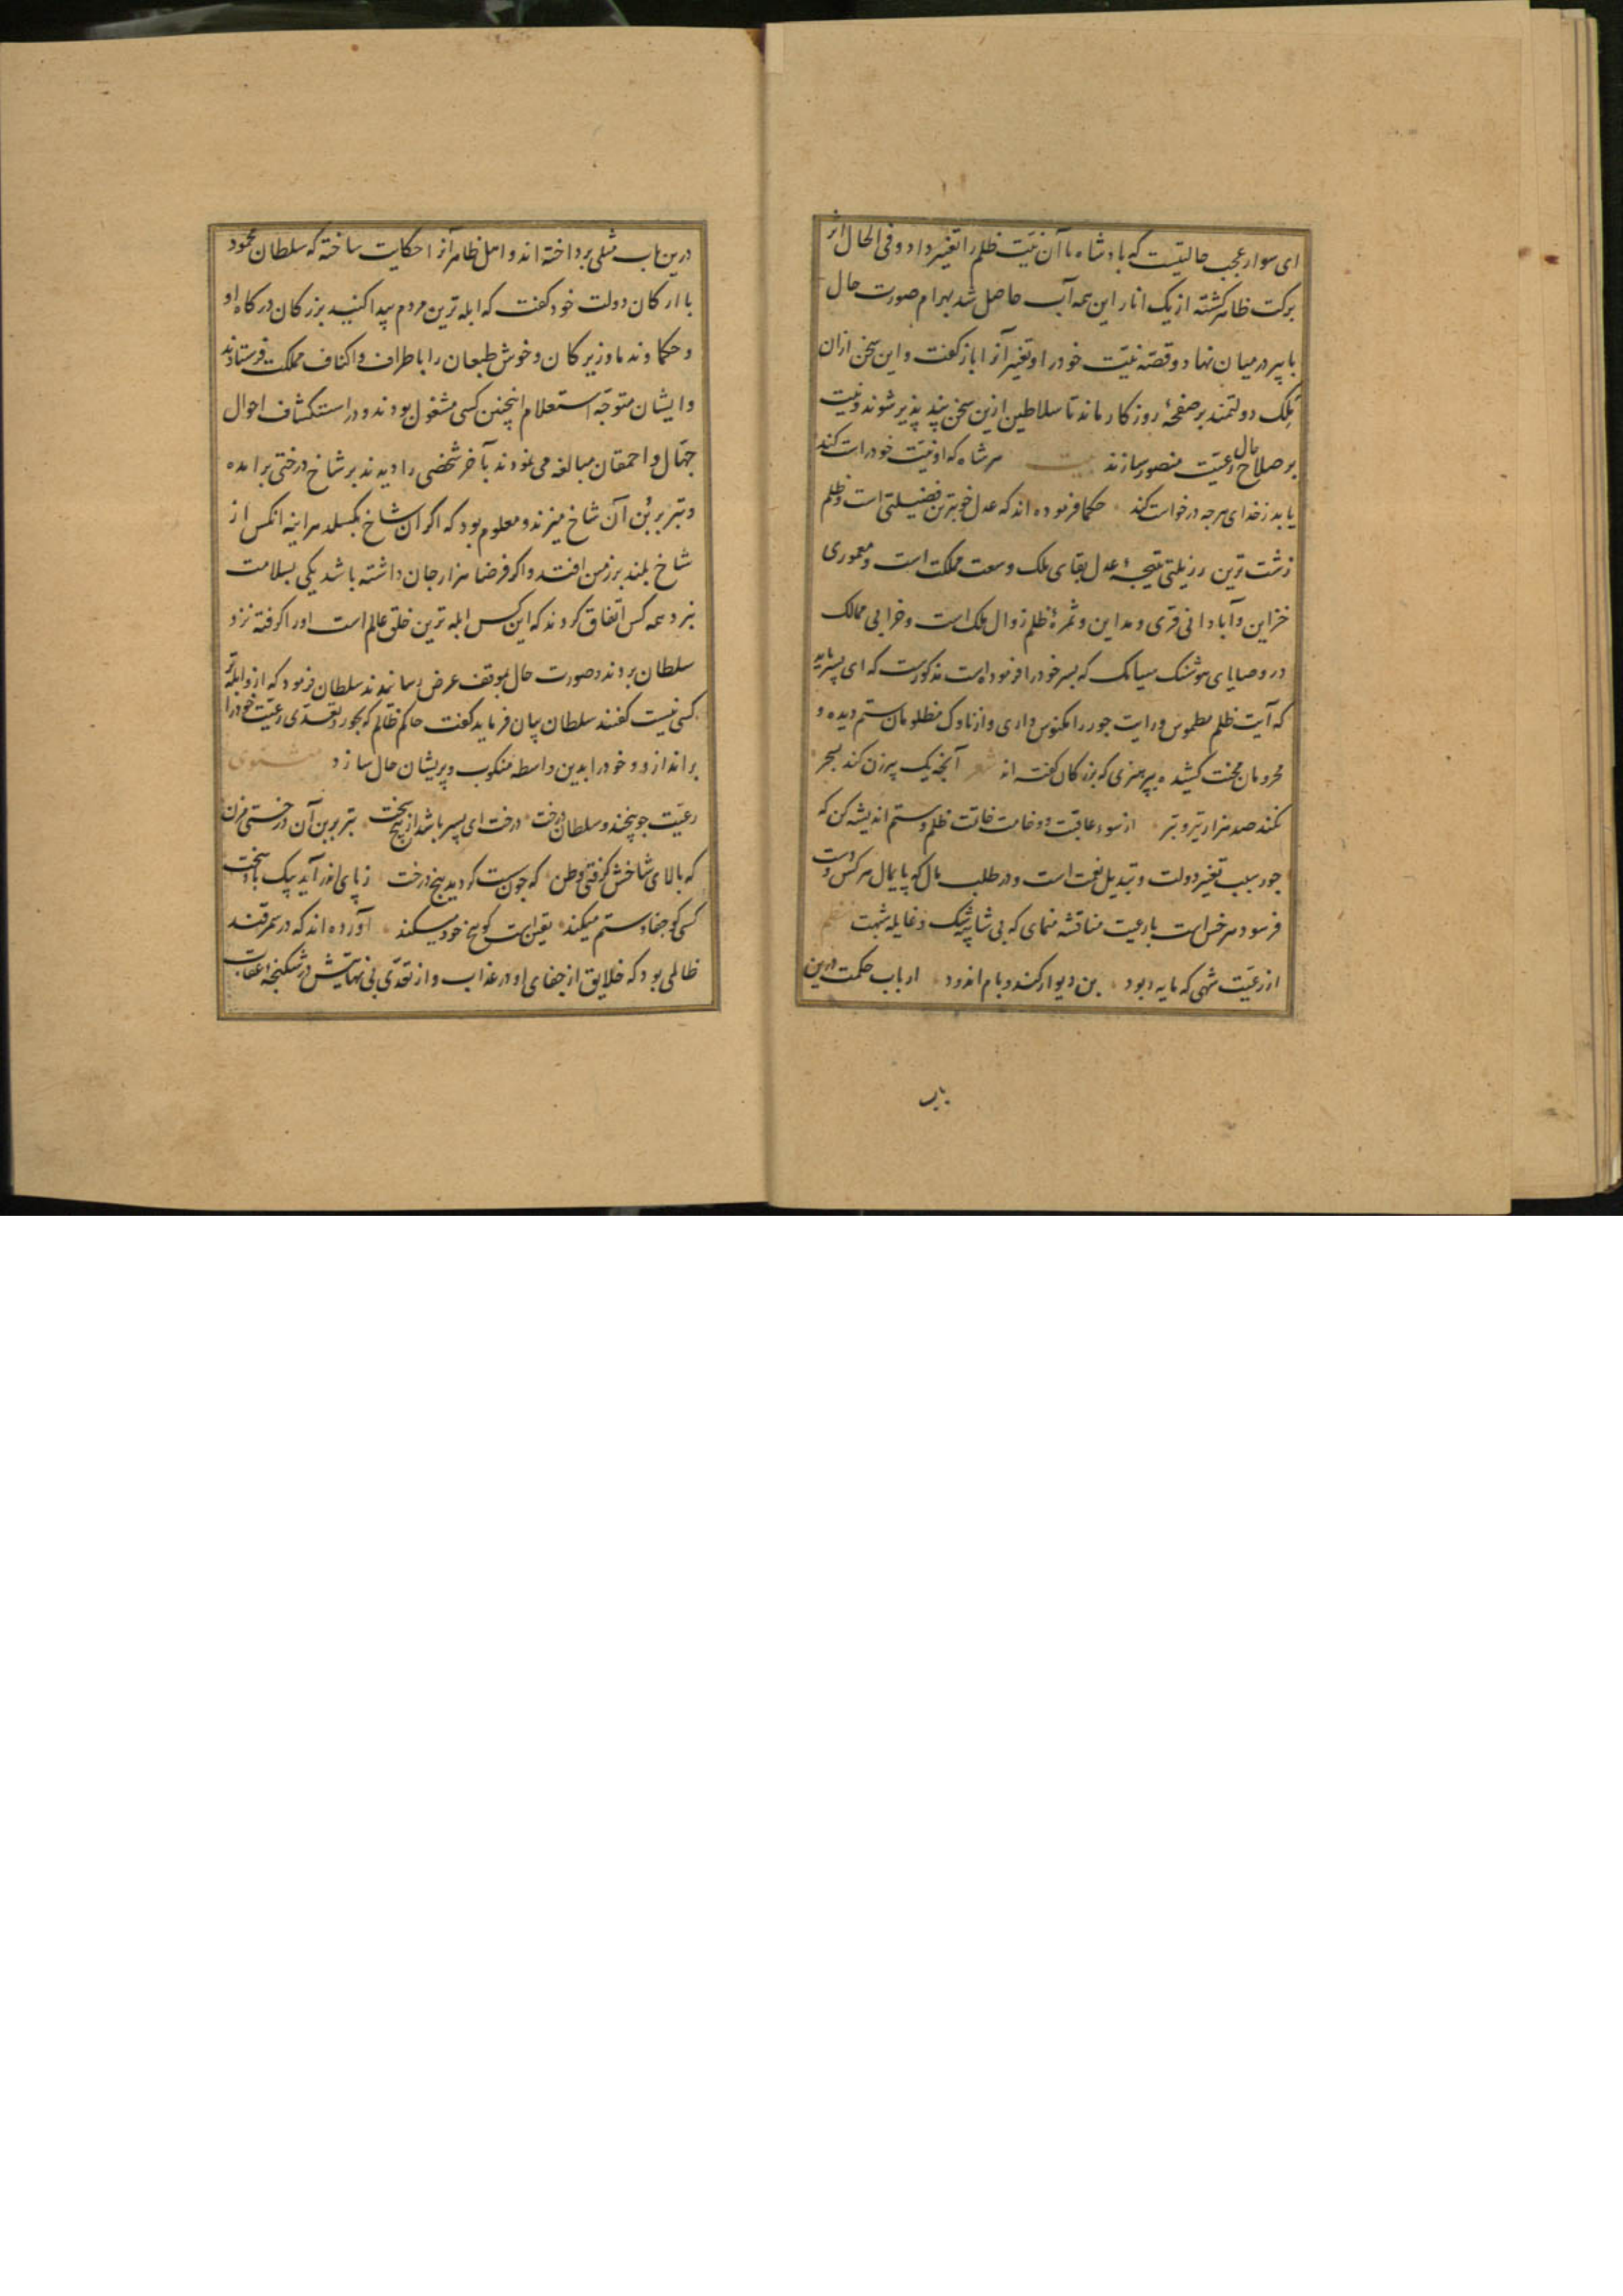 ای سوار عجب حالتیست که پادشاه ما آن نیت ظلم را تغییر داد و فی الحال اثر
برکت ظاهر کشته از یک انار این همه آب حاصل شد بهرام صورت حال
با پیر درمیان نهاد و قصهٔ نیت خود را و تغییر آنرا باز کفت و این سخن ازان
ملک دولتمند بر صفحهٔ روزکار ماند تا سلاطین ازین سخن پند پذیر شوند و نیت
بر صلاح حال رعیت منصور سازند بیت هر شاه که او نیت خود راست کند
یابد ز خدای هرچه درخواست کند حکما فرموده اند که عدل خوبترین فضیلتی است و ظلم
زشت ترین رزیلتی نتیجهٔ عدل بقای ملک و وسعت مملکت است و معموری
خزاین و آبادانی قری و مداین و ثمرهٔ ظلم زوال ملک است و خرابی ممالک
در وصایای هوشنک سیامک که پسر خود را فرموده است مذکورست که ای پسر باید
که آیت ظلم مطموس و رایت جور را منکوس داری و از ناوک مظلومان ستم دیده و
محرومان محنت کشیده بپرهیزی که بزرکان کفته اند شعر آنچه یک پیرزن کند بسحر
نکند صد هزار تیر و تبر از سوء عاقبت و وخامت خاتمت ظلم و ستم اندیشه کن که
جور سبب تغییر دولت و تبدیل نعمت است و در طلب مال که پایمال هر کس و دست
فرسود هر خس است با رعیت مناقشه منمای که بی شایبه شک و غایله شبهت نظم
از رعیت شهی که مایه ربود بن دیوار کند و بام اندود ارباب حکمت درین
باب
درین باب مثلی پرداخته اند و اهل ظاهر آنرا حکایت ساخته که سلطان محمود
با ارکان دولت خود کفت که ابله ترین مردم پیدا کنید بزرکان درکاه او
و حکما و ندما و زیرکان و خوش طبعان را باطراف و اکناف مملکت فرستادند
و ایشان متوجه استعلام اینچنین کسی مشغول بودند و در استکشاف احوال
جهال و احمقان مبالغه می نمودند بآخر شخصی را دیدند بر شاخ درختی برامده
و تبر بر بن آن شاخ میزند و معلوم بود که اکر آن شاخ بکسلد هراینه انکس از
شاخ بلند بر زمین افتد و اکر فرضا هزار جان داشته باشد یکی بسلامت
نبرد همه کس اتفاق کردند که این کس ابله ترین خلق عالم است او را کرفته نزد
سلطان بردند و صورت حال بموقف عرض رسانیدند سلطان فرمود که ازو ابله تر
کسی نیست کفتند سلطان بیان فرماید کفت حاکم ظالم که بجور و تعدی رعیت خود را
براندازد و خود را بدین واسطه منکوب و پریشان حال سازد مثنوی
رعیت چو بیخند و سلطان درخت درخت ای پسر باشد از بیخ سخت تبر بر بن آن درختی مزن
که بالای شاخش کرفتی وطن که چون سست کردید بیخ درخت ز پای اندر آید بیک باد سخت
کسی کو جفا و ستم میکند یقین است کو بیخ خود میکند آورده اند که در سمرقند
ظالمی بود که خلایق از جفای او در عذاب و از تعدی بی نهایتش در شکنجه اعقاب